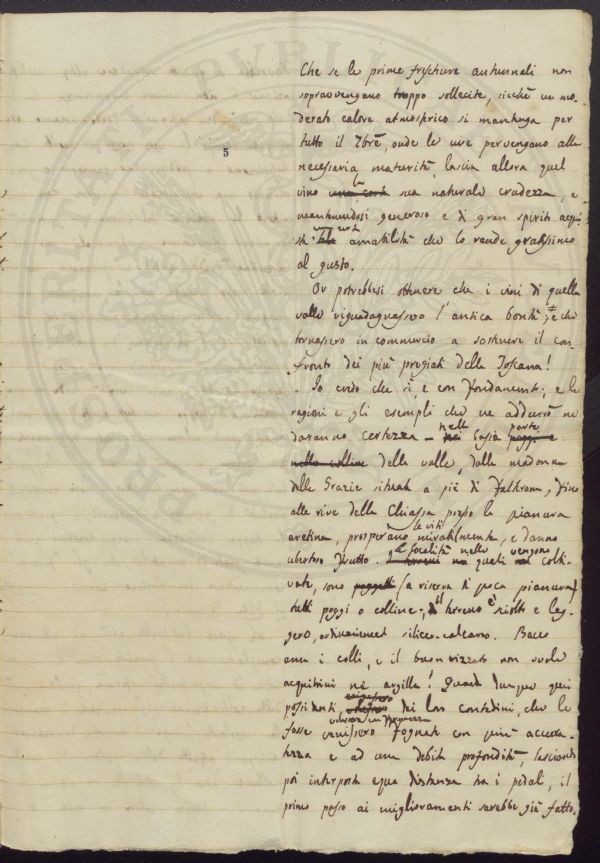 5
Che se le prime frescure autunnali non
sopravvengano troppo sollecite, sicchè un mo-
derato calore atmosferico si mantenga per
tutto il 7bre, onde le uve pervengano alla
necessaria maturità, lascia allora quel
vino una certa sua naturale crudezza, e
mantenendosi generoso e di gran spirito acqui-
una certa
sta tale amabilità che lo rende gratissimo
al gusto.
Or potrebbesi ottenere che i vini di quella
valle riguadagnassero l'antica bontà, e che
tornassero in commercio a sostenere il con-
fronto dei più pregiati della Toscana!
Io credo che sì, e con fondamento; e le
ragioni e gli esempli che ne addurrò ne
nella parte
daranno certezza – nei bassa poggi e
nelle colline della valle, dalla madonna
delle Grazie situata a piè di Faltrona, fino
alle rive della Chiassa presso la pianura
le viti
aretina, prosperano mirabilmente, e danno
le località nelle vengono
ubertoso frutto. I terreni quali colti-
vate, sono poggetti (a riserva di poca pianura)
il è
tutti poggi o colline; terreno sciolto e leg-
gero, ordinariamente siliceo-calcareo. Bacco
ama i colli, e il buon vizzato non vuole
acquitrini nè argilla! Quando dunque quei
esigessero
possidenti dei loro contadini, che le
fosse venissero fognate con più accura-
tezza e ad una debita profondità, lasciando
poi interposta equa distanza tra i pedali, il
primo passo ai miglioramenti sarebbe già fatto.